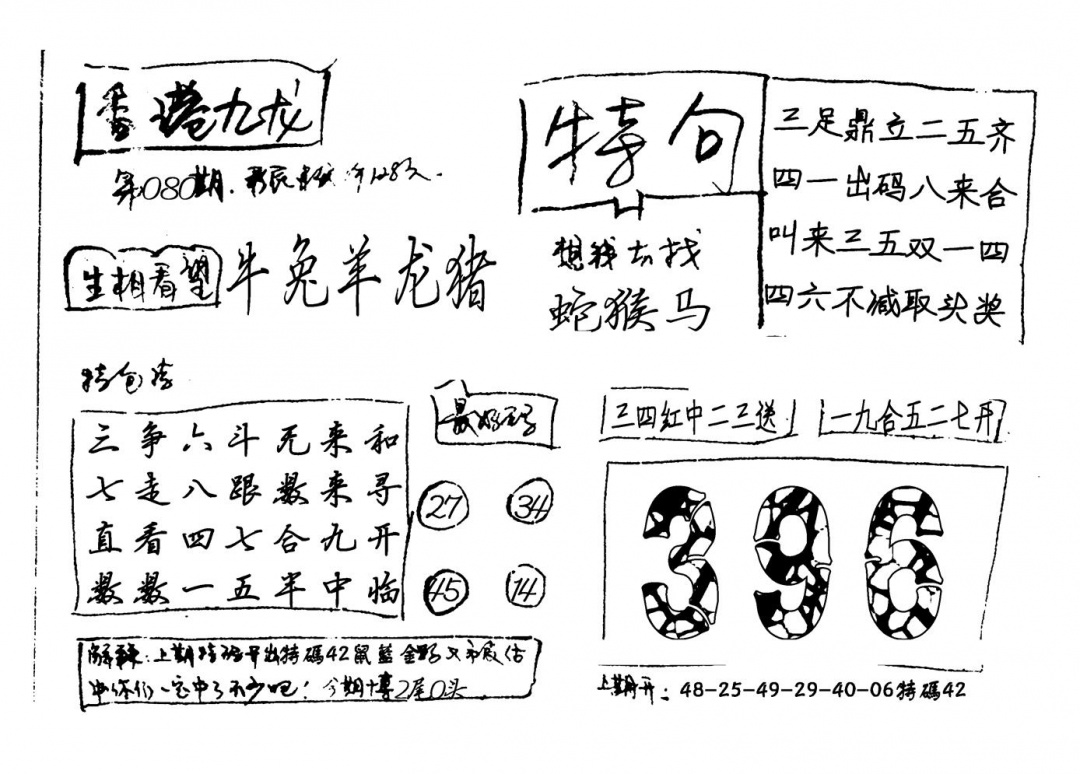 香港九龙
第080期.
生相看望
牛兔羊龙猪
特句
想我去找
蛇猴马
三足鼎立二五齐
四一出码八来合
叫来三五双一四
四六不减取头奖
特包
三争六斗无来和
七走八跟数来寻
直看四七合九开
数数一五半中临
最好
27 34
45 14
三四红中二三送
一九合五二七开
396
解释:上期特码开出特碼42鼠蓝
中你们一定中了不少吧!今期博2尾0头
上期开:48-25-49-29-40-06特碼42